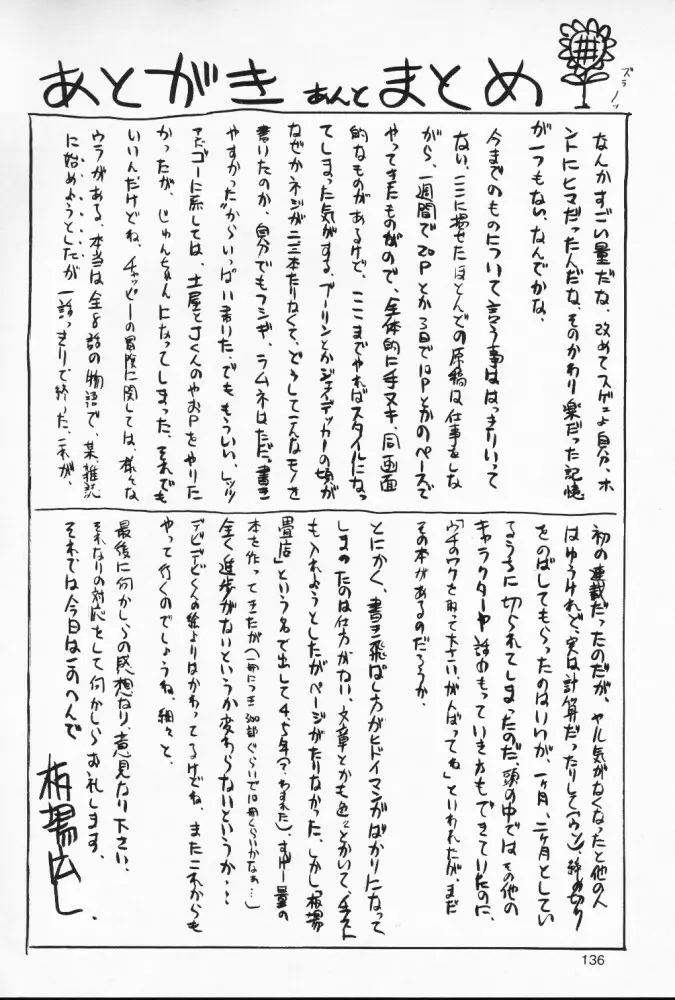 あとがき あんど まとめ
ズラノッ
なんかすごい量だな、改めてスゲェよ自分、ホ
ントにヒマだった人だな、そのかわり楽だった記憶
が一つもない、なんでかな、
今までのものについて言う事ははっきりいって
ない、ここに揚せたほとんどの原稿は仕事をしな
がら、一週間で20Pとか3日で12Pとかのペースで
やってきたものがので、全体的に手ヌキ、同画面
的なものがあるけど、ここまでやればスタイルになっ
てしまった気がする、ブーリンとかジェイデッカーの頃が
なぜかネジが二三本たりなくて、どうしてこんなモノを
書いたのか、自分でもフシギ、ラムネはただ。書き
やすかった〟からいっぱい書いた、でももういい、レッツ
アンドゴーに系しては、土屋とJくんのやおPをやりた
かったが、じゅんちゃんになってしまった、それでも
いいんだけどね、チャッピーの冒険に関しては、様々な
ウラがある、本当は全8話の物語で、某、雑誌
に始めようとしたが一話っきりで終った、これが、
初の連載だったのだが、ヤル気がなくなったと他の人
はゆうけれど、実は計算だったりして(ウソ)、締め切り
をのばしてもらったのはいいが、一ヶ月、二ヶ月としてい
るうちに切られてしまったのだ、頭の中では、その他の
キャラクターや話のもっていき方もできていたのに、
「ウチのワクを取って下さい、がんばってね」といわれたが、まだ
その本があるのだろうか、
とにかく、書き飛ばし方がヒドイマンガばかりになって
しまったのは仕方がない、文章とかも色々とかいて、イラスト
も入れようとしたがページがたりなかった、しかし「板場
畳店」という名で出して4、5年(?、わすれた)、すげー量の
本を作ってきたが(一冊につき300部ぐらいで10冊くらいかなぁ…)
全く進歩がないというか変わらないというか・・
デビデビくんの絵よりはかわってるけどね、またこれからも
やって行くのでしょうね、細々と、
最後に何かしらの感想なり、意見なり下さい、
それなりの対応をして何かしらお礼します、
それでは今日はこのへんで
板場広し、
136